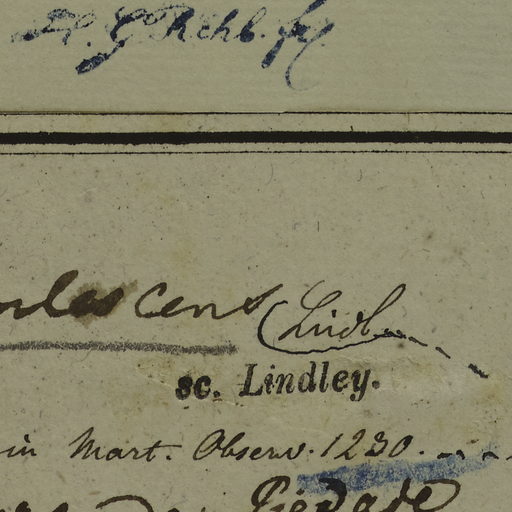 H. G. Rchb. f.
lescens (Lindl.
sc. Lindley.
in Mart. Observ. 1230.
Piedade